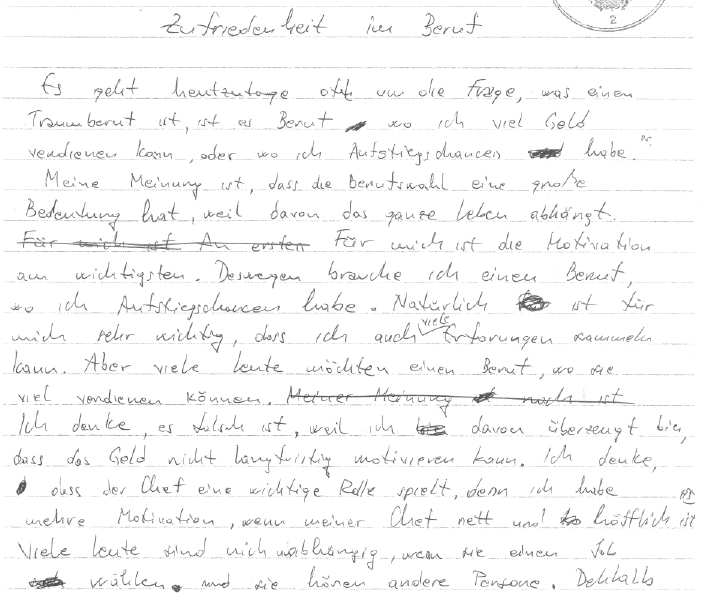 Zufriedenheit im Beruf
2
Es geht heutzutage oft um die Frage, was einen
Traumberuf ist, ist es Beruf wo ich viel Geld
verdienen kann, oder wo ich Aufstiegschancen habe.
Meine Meinung ist, dass die Berufswahl eine große
Bedeutung hat, weil davon das ganze Leben abhängt.
Für mich ist An ersten Für mich ist die Motivation
am wichtigsten. Deswegen brauche ich einen Beruf,
wo ich Aufstiegschancen habe. Natürlich ist für
mich sehr wichtig, dass ich auch viele Erfarungen sammeln
kann. Aber viele Leute möchten einen Beruf, wo sie
viel verdienen können. Meiner Meinung nach ist
Ich denke, es falsch ist, weil ich davon überzeugt bin,
dass das Geld nicht langfristig motivieren kann. Ich denke,
dass der Chef eine wichtige Rolle spielt, denn ich habe
mehre Motivation, wenn meiner Chef nett und höfflich ist
Viele Leute sind nich unabhängig, wenn sie einen Job
wählen. und sie hören andere Persone. Dehhalb